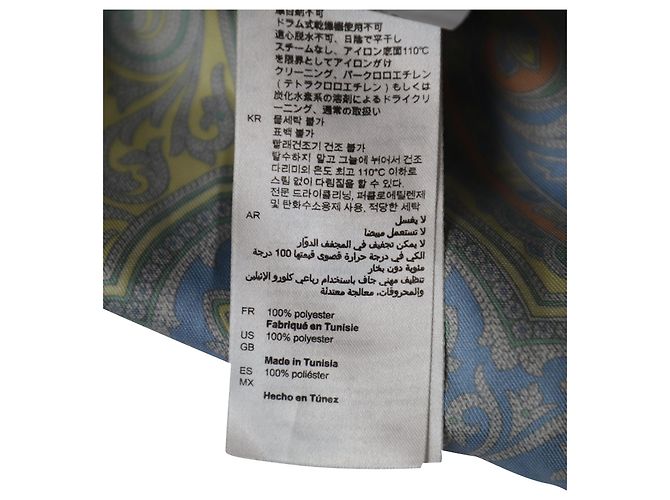 ドラム式乾燥機使用不可
遠心脱水不可、日陰で平干し
スチームなし、アイロン底面110℃
を限界としてアイロンがけ
クリーニング、パークロロエチレン
(テトラクロロエチレン)もしくは
炭化水素系の溶剤によるドライクリ
ーニング、通常の取扱い
KR 물세탁 불가
표백 불가
빨래건조기 건조 불가
탈수하지 말고 그늘에 뉘어서 건조
다리미의 온도 최고 110℃ 이하로
스팀 없이 다림질을 할 수 있다.
전문 드라이클리닝, 퍼클로에틸렌제
및 탄화수소용제 사용, 적당한 세탁
AR لا يغسل
لا تستعمل مبيضا
لا يمكن تجفيف في المجفف الدوّار
الكي في درجة حرارة قصوى قيمتها 100 درجة
مئوية دون بخار
تنظيف مهني جاف باستخدام رباعي كلورو الإثيلين
والمحروقات، معالجة معتدلة
FR 100% polyester
Fabriqué en Tunisie
US 100% polyester
GB
Made in Tunisia
ES 100% poliéster
MX
Hecho en Túnez